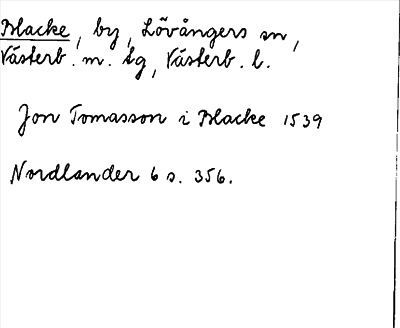 Blacke, by, Lövångers sn,
Västerb. m. tg, Västerb. l.
Jon Tomasson i Blacke 1539
Nordlander 6 s. 356.